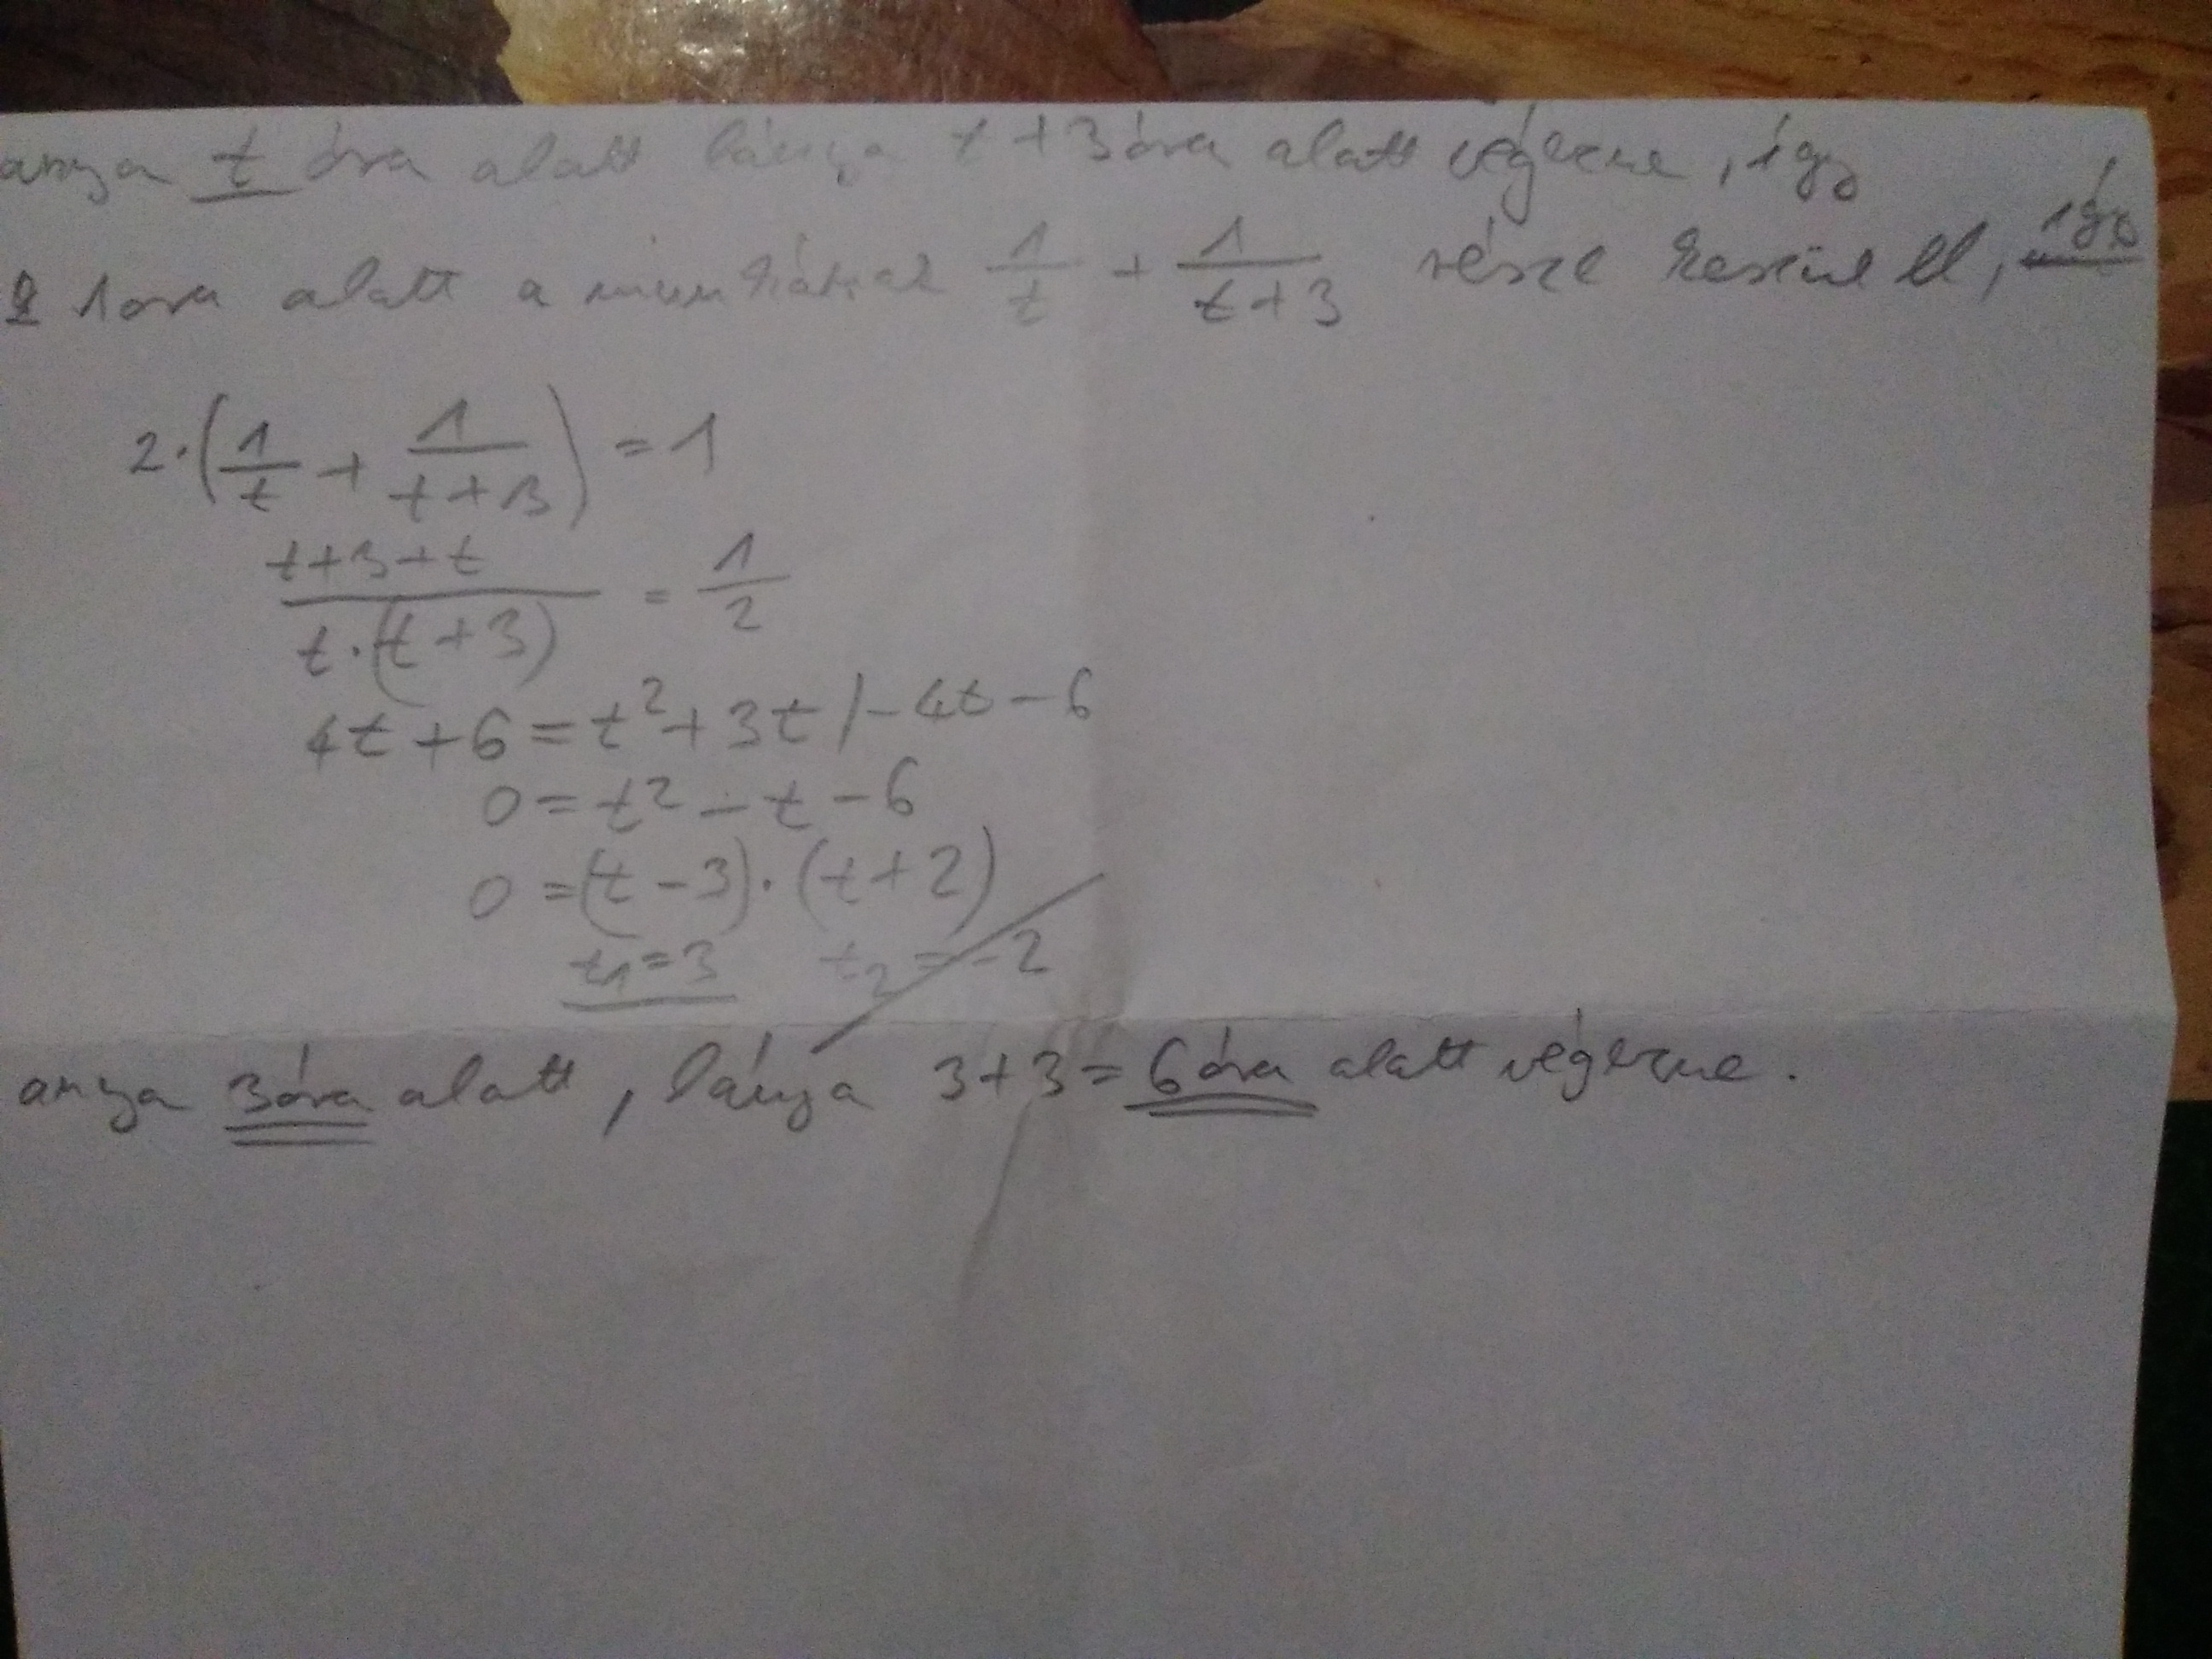 anya t óra alatt lánya t+3 óra alatt végezne, így
1 óra alatt a munkának 1/t + 1/(t+3) része készül el, így
2·(1/t + 1/(t+3)) = 1
(t+3+t)/(t·(t+3)) = 1/2
4t+6=t²+3t /-4t-6
0=t²-t-6
0=(t-3)·(t+2)
t₁=3 t₂=-2
anya 3 óra alatt, lánya 3+3=6 óra alatt végezne.